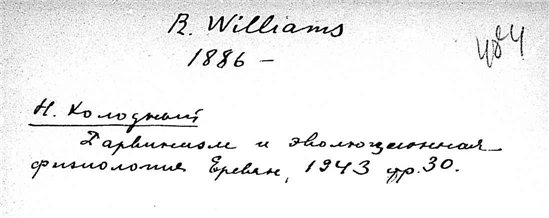 R. Williams
1886 –
Н. Холодный
Дарвинизм и эволюционная
физиология Ереван, 1943 стр. 30.